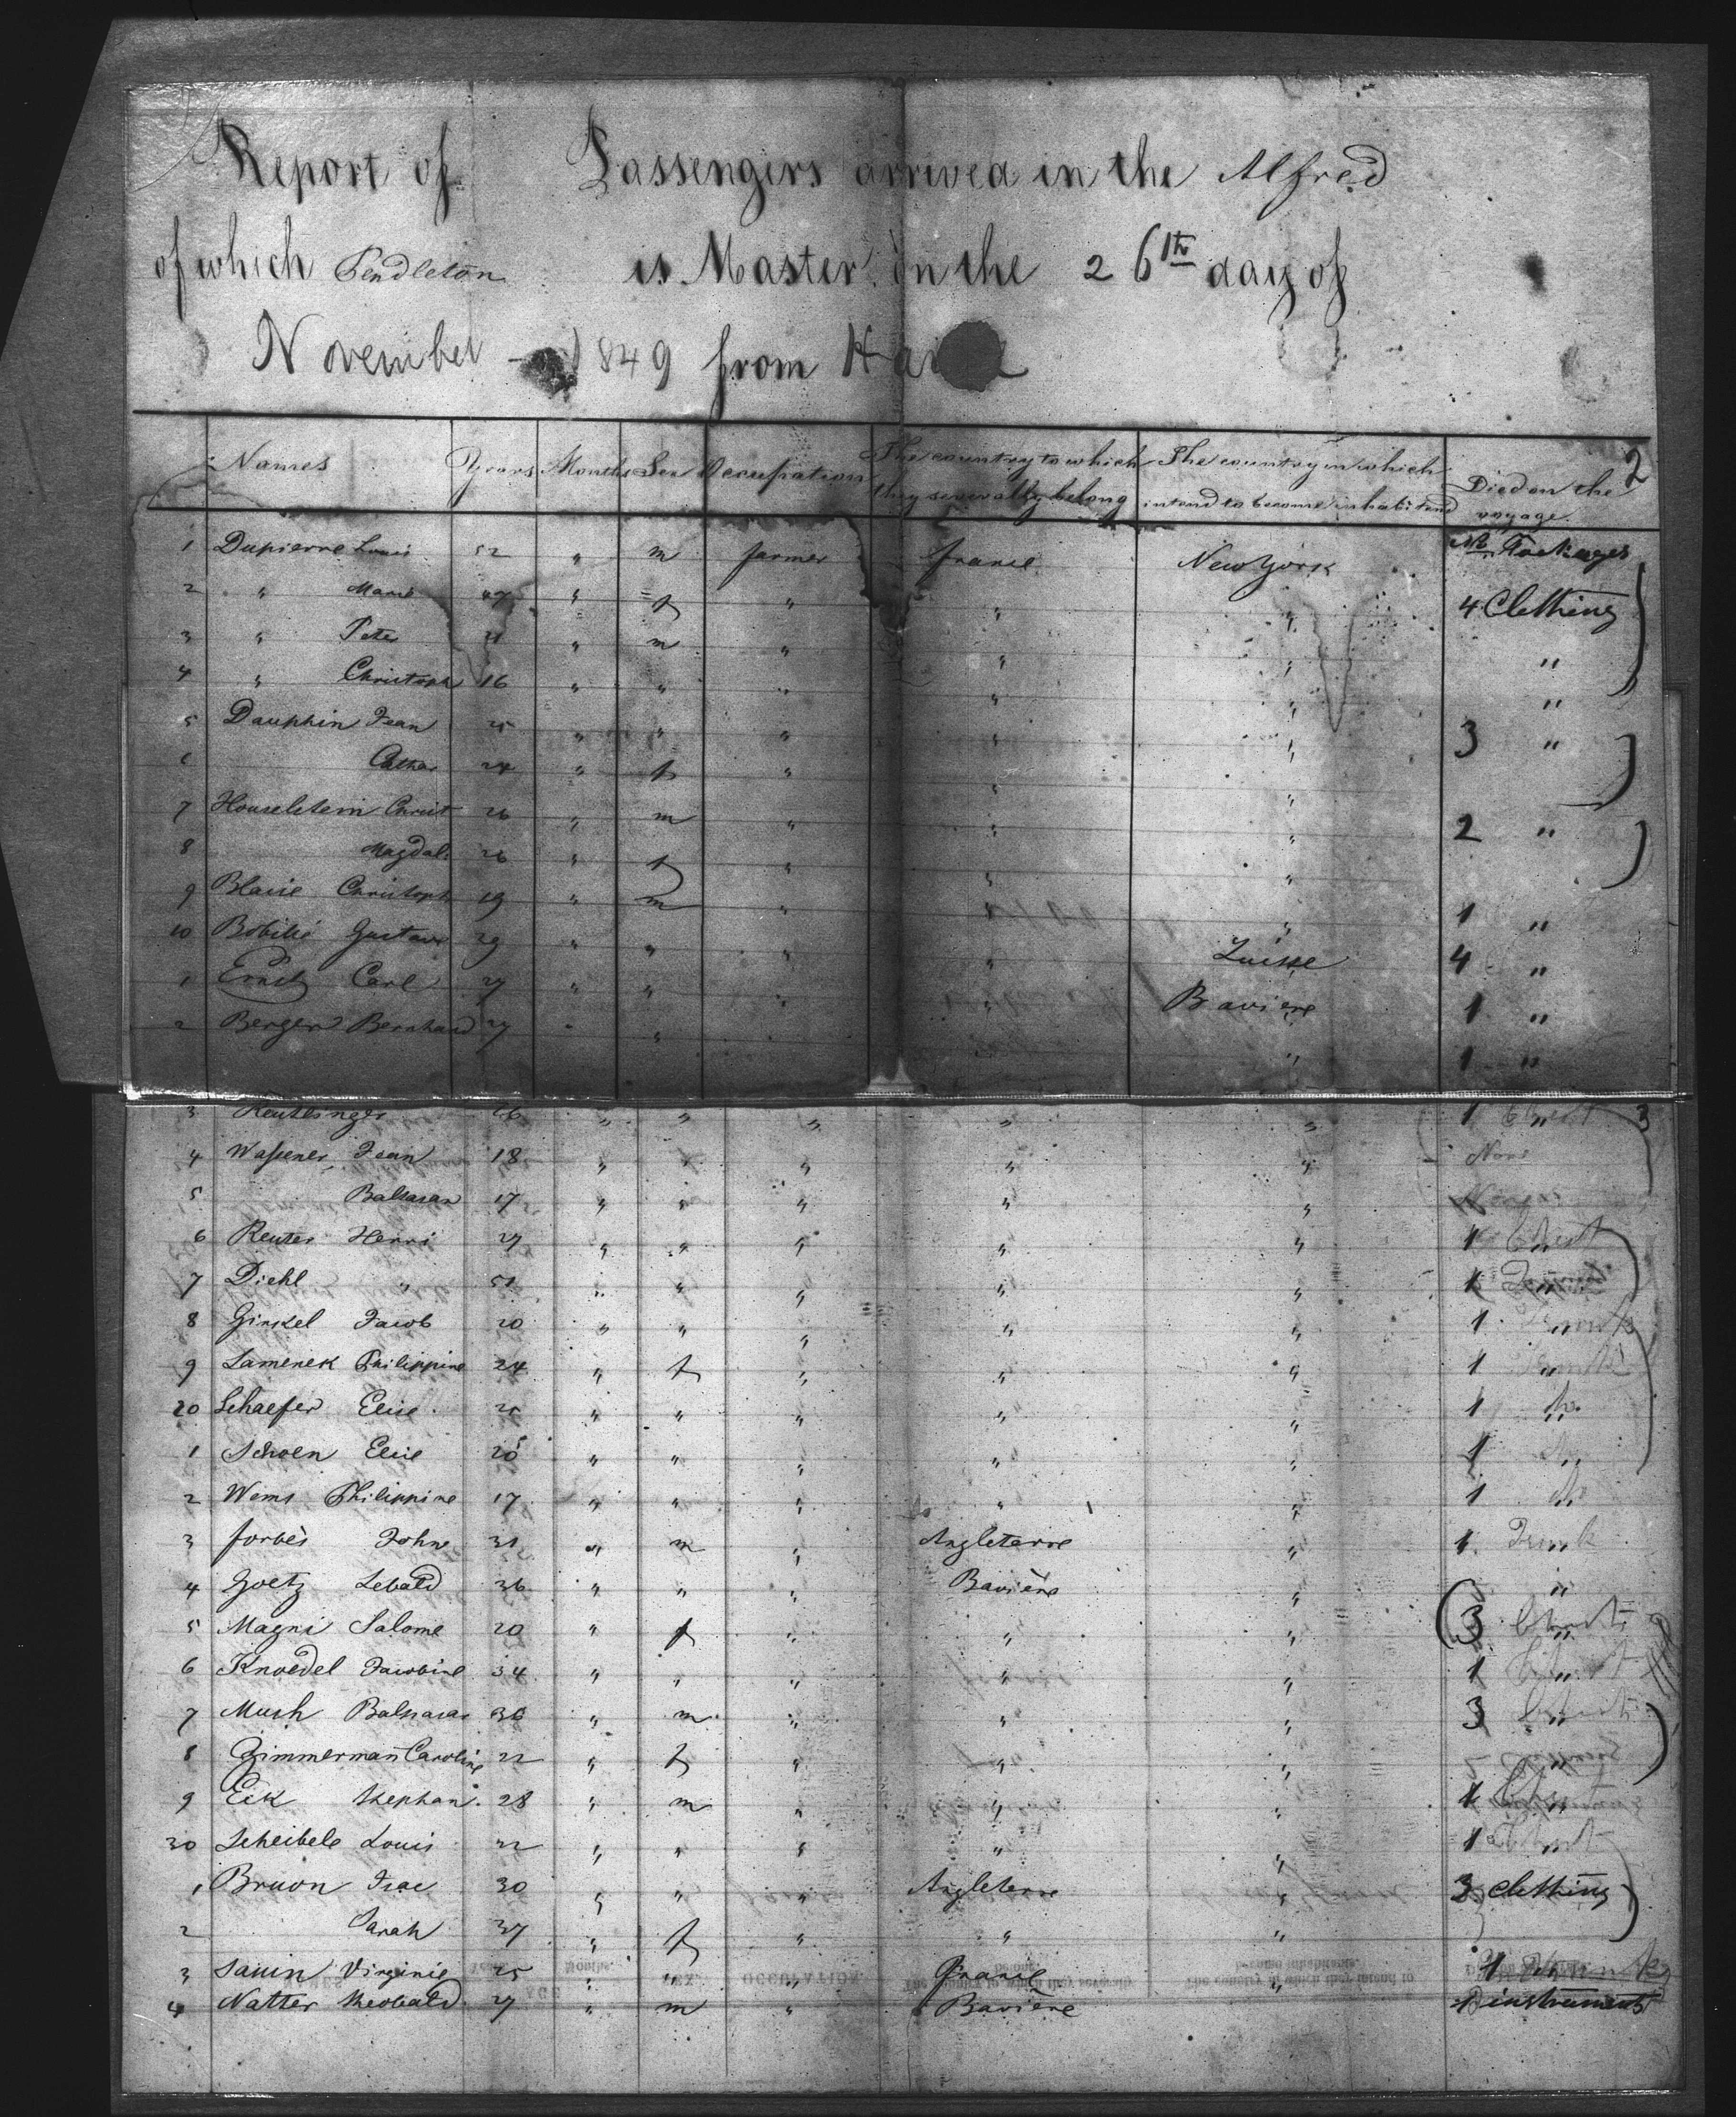 Report of Passengers arrived in the Alfred
of which Pendleton is Master on the 26th day of
November 1849 from
Names Years Months Sex Occupation The country to which they severally belong The country in which intend to become inhabitend Died on the voyage 2
No Packages
1 Dupierre Louis 52 " m farmer france New York
2 " Marie 47 " f " " " 4 Clothing
3 " Peter 21 " m " " " "
4 " Christoph 16 " " " " " "
5 Dauphin Jean 25 " " " " " 3 "
6 Cathar 24 " f " " "
7 Houselstein Christ 26 " m " " " 2 "
8 Magdal. 26 " f " " "
9 Blaise Christoph 19 " m " " " 1 "
10 Bobilié Gustave 29 " " " " Suisse 4 "
1 Ernst Carl 27 " " " " Baviere 1 "
2 Berger Bernhard 27 " " " 1 "
3 Reutlinger 26 " " " " " 1 Chest 3
4 Wassener Jean 18 " " " " " None
5 Baltasar 17 " " " " " None
6 Reuter Henri 27 " " " " " 1 Chest
7 Diehl " 51 " " " " " 1 "
8 Ginkel Jacob 20 " " " " " 1 Trunk
9 Lamenek Philippine 24 " f " " " 1 Trunk
20 Schaefer Elise 25 " " " " " 1 "
1 Schoen Elise 25 " " " " " 1 "
2 Wems Philippine 17 " " " " " 1
3 Forbès John 31 " m " Angleterre " 1 Trunk
4 Goetz Sebald 36 " " " Bavière " "
5 Magni Salome 20 " f " " " 3 Chests
6 Knoedel Jacobine 34 " " " " " 1 Chest
7 Mush Baltasar 36 " m " " " 3 Chests
8 Zimmermann Caroline 22 " f " " " "
9 Eck Stephan 28 " m " " " 1 "
30 Scheibele Louis 22 " " " " " 1 Chest
1 Bruon Isac 30 " " " Angleterre " 3 Clothing
2 Sarah 37 " f " " "
3 Sauin Virginie 25 " " " France " 1
4 Natter Theobald 27 " m " Bavière 1 instruments